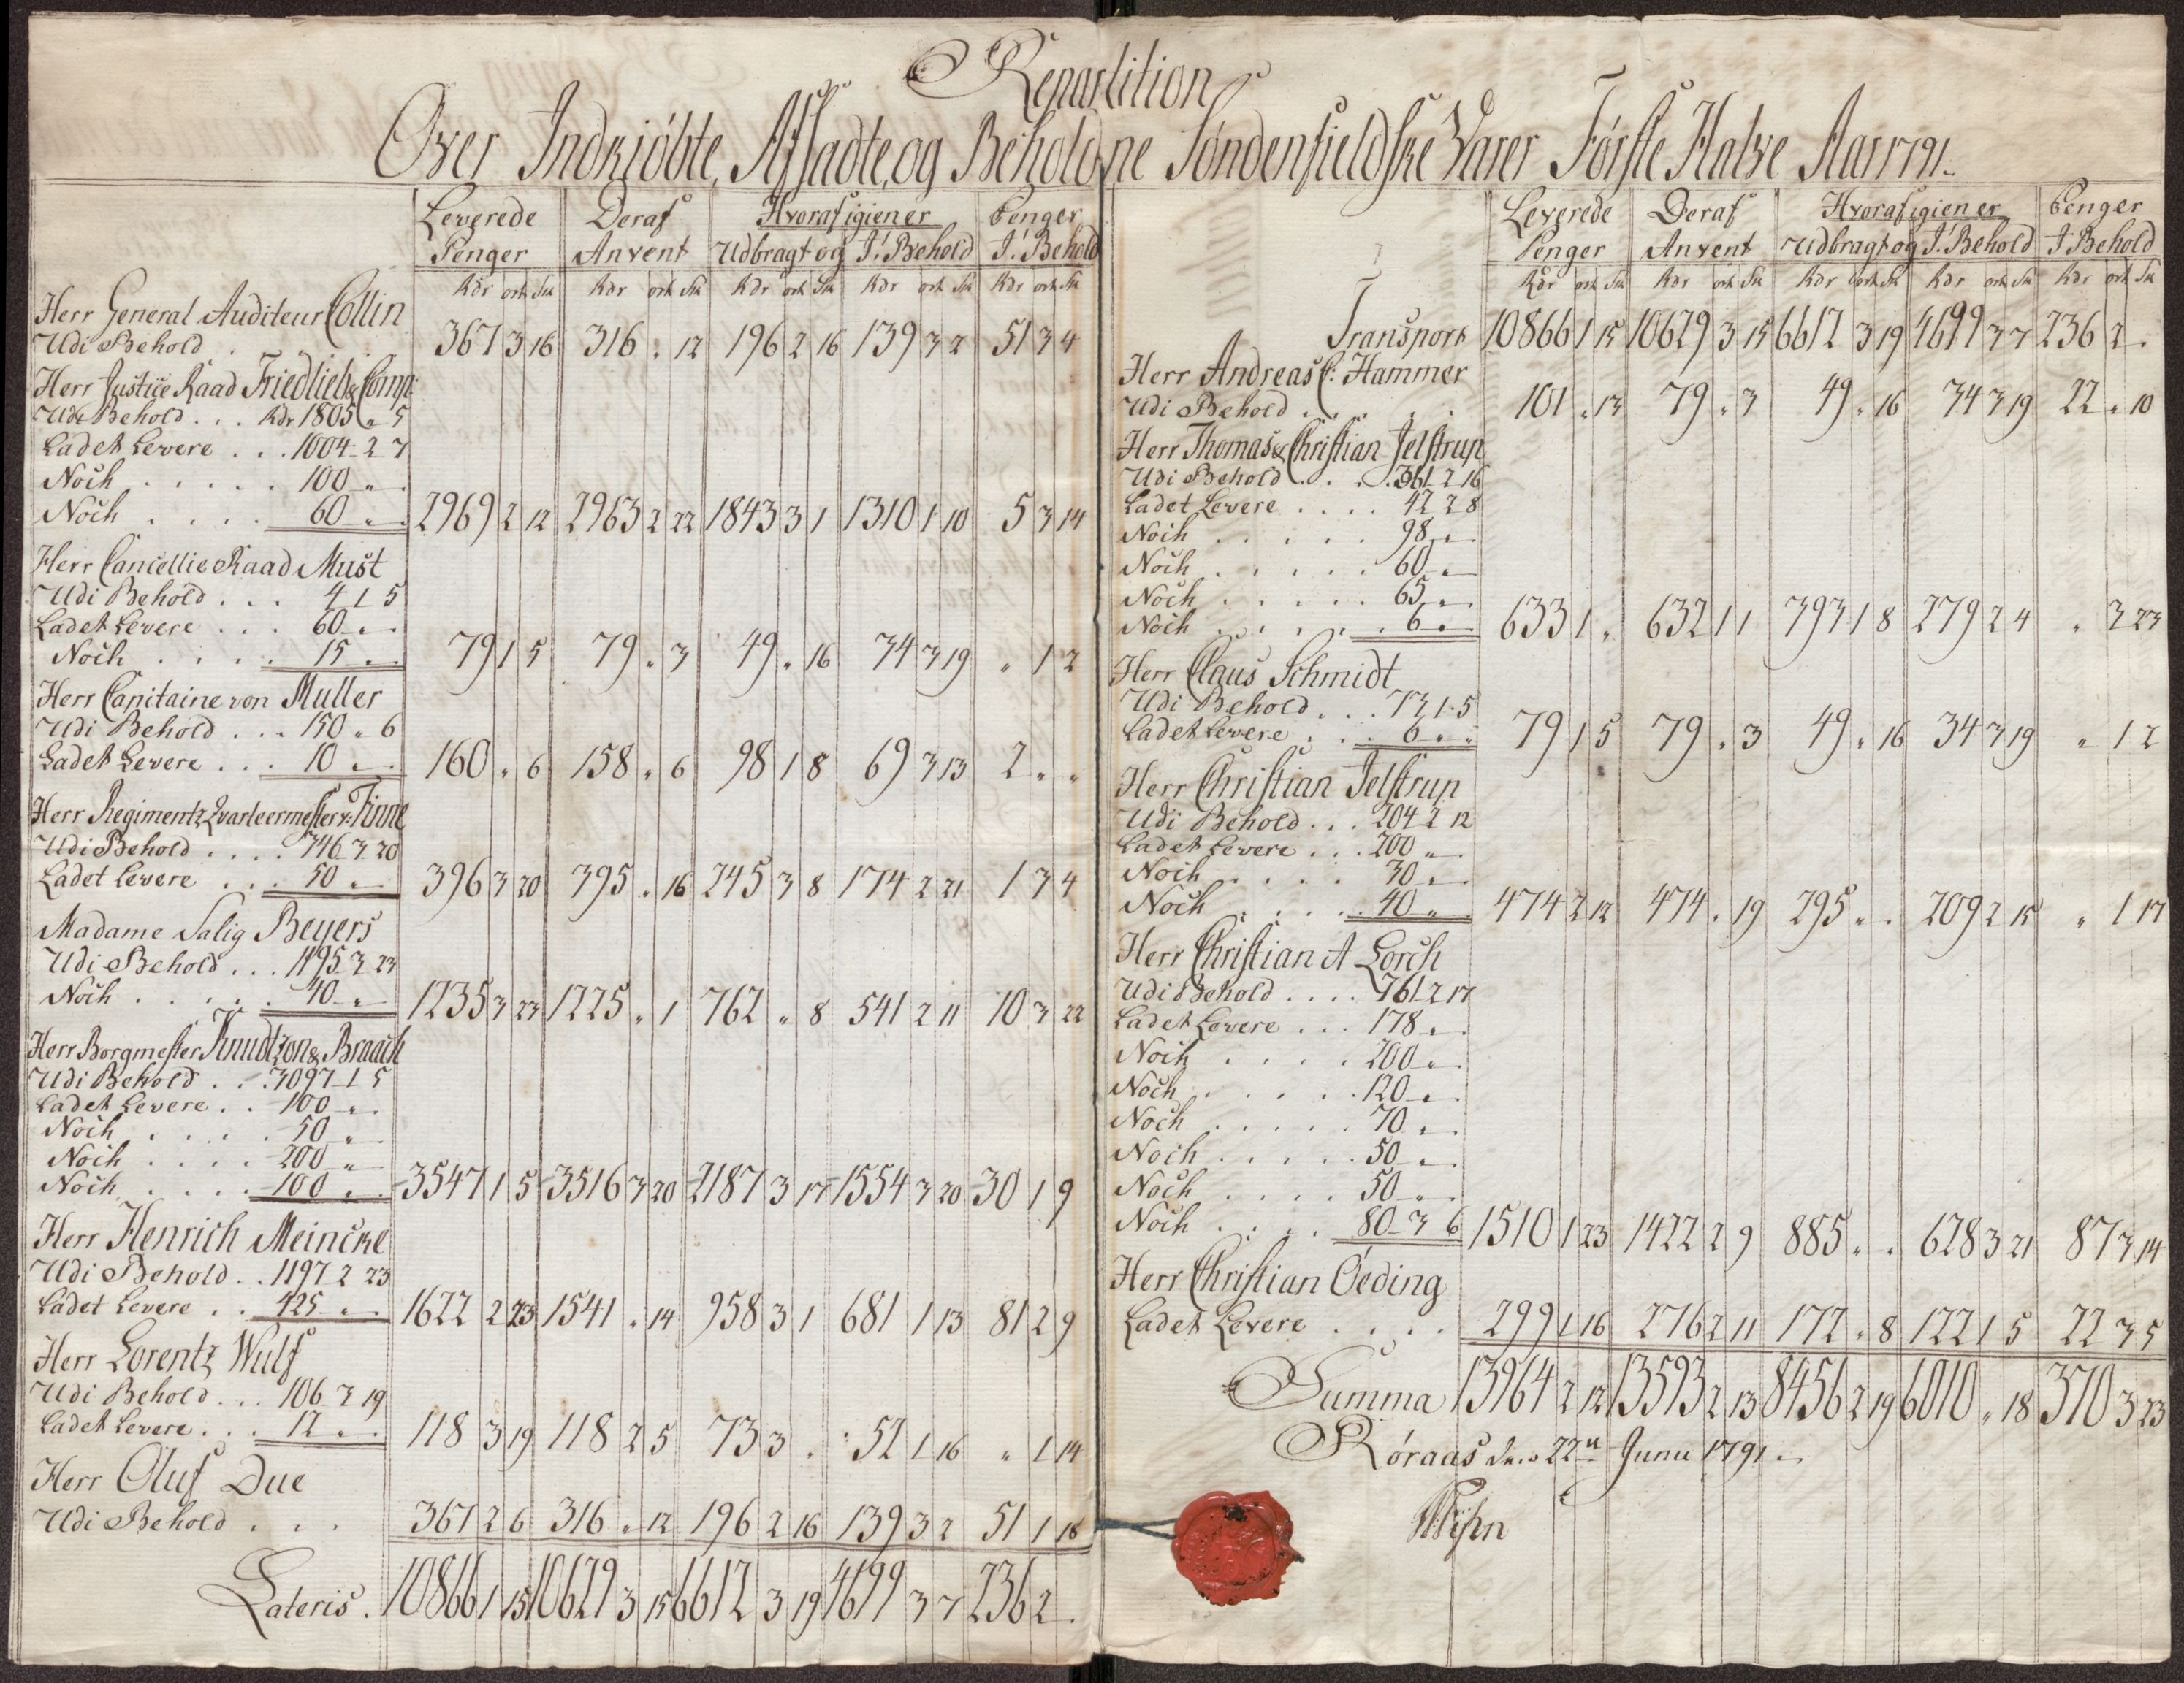 Repartition
Over Indkiöbte, Afsadte, og Beholdne Söndenfieldske Varer Förste Halve Aar 1791.
Leverede Penger | Deraf Anvent | Hvorafigien er Udbragt og | I Behold | Penger I Behold
Rdr ort Sk | Rdr ort Sk | Rdr ort Sk | Rdr ort Sk | Rdr ort Sk
Herr General Auditeur Collin
Udi Behold . 367 3 16 | 316 " 12 | 196 2 16 | 139 3 2 | 51 3 4
Herr Justice Raad Friedlieb & Comp:
Udi Behold . . . Rdr 1805 " 5
Ladet Levere . . . 1004 2 7
Noch . . . . . 100 "
Noch . . . . 60 " . 2969 2 12 | 2963 2 22 | 1843 3 1 | 1310 1 10 | 5 3 14
Herr Cancellie Raad Must
Udi Behold . . . 4 1 5
Ladet Levere . . . 60 "
Noch . . . . 15 " . 79 1 5 | 79 " 3 | 49 " 16 | 34 3 19 | " 1 2
Herr Capitaine von Muller
Udi Behold . . . 150 " 6
Ladet Levere . . . 10 " . 160 " 6 | 158 " 6 | 98 1 8 | 69 3 13 | 2 " "
Herr Regimentz Qvarteermester v: Finne
Udi Behold . . . . 346 3 20
Ladet Levere . . . 50 " 396 3 20 | 395 " 16 | 245 3 8 | 174 2 21 | 1 3 4
Madame Salig Beyers
Udi Behold . . . 1195 3 23
Noch . . . . . 40 " 1235 3 23 | 1225 " 1 | 762 " 8 | 541 2 11 | 10 3 22
Herr Borgmester Knudtzon & Braach
Udi Behold . . . 3097 1 5
Ladet Levere . . 100 " .
Noch . . . . . 50 "
Noch . . . . 200 "
Noch . . . . 100 " . 3547 1 5 | 3516 3 20 | 2187 3 17 | 1554 3 20 | 30 1 9
Herr Henrich Meincke
Udi Behold . . 1197 2 23
Ladet Levere . . 425 " . 1622 2 23 | 1541 " 14 | 958 3 1 | 681 1 13 | 81 2 9
Herr Lorentz Wulf
Udi Behold . . . 106 3 19
Ladet Levere . . . 12 " . 118 3 19 | 118 2 5 | 73 3 . | 52 1 16 | " 1 14
Herr Oluf Due
Udi Behold . . . 367 2 6 | 316 " 12 | 196 2 16 | 139 3 2 | 51 1 18
Lateris . 10866 1 15 | 10629 3 15 | 6612 3 19 | 4699 3 7 | 236 2 .
Leverede Penger | Deraf Anvent | Hvorafigien er Udbragt og | I Behold | Penger I Behold
Rdr ort Sk | Rdr ort Sk | Rdr ort Sk | Rdr ort Sk | Rdr ort Sk
Transport 10866 1 15 | 10629 3 15 | 6612 3 19 | 4699 3 7 | 236 2 .
Herr Andreas C: Hammer
Udi Behold . . . . 101 " 13 | 79 " 3 | 49 " 16 | 34 3 19 | 22 " 10
Herr Thomas & Christian Jelstrup
Udi Behold . . . 361 2 16
Ladet Levere . . . . 42 2 8
Noch . . . . . 98 "
Noch . . . . . 60 "
Noch . . . . . 65 "
Noch . . . . . 6 " 633 1 " | 632 1 1 | 393 1 8 | 279 2 4 | " 3 23
Herr Claus Schmidt
Udi Behold . . . 73 1 5
Ladet Levere . . . 6 " " 79 1 5 | 79 " 3 | 49 " 16 | 34 3 19 | " 1 2
Herr Christian Jelstrup
Udi Behold . . . 204 2 12
Ladet Levere . . . 200 "
Noch . . . . 30 "
Noch . . . . . 40 " . 474 2 12 | 474 " 19 | 295 " . | 209 2 15 | " 1 17
Herr Christian A Lorch
Udi Behold . . . . 761 2 17
Ladet Levere . . . 178 " .
Noch . . . . 200 "
Noch . . . . . 120 " .
Noch . . . . . 70 "
Noch . . . . . 50 "
Noch . . . . 50 "
Noch . . . . 80 3 6 1510 1 23 | 1422 2 9 | 885 " . | 628 3 21 | 87 3 14
Herr Christian Öeding
Ladet Levere . . . . 299 1 16 | 276 2 11 | 172 " 8 | 122 1 5 | 22 3 5
Summa 13964 2 12 | 13593 2 13 | 8456 2 19 | 6010 " 18 | 370 3 23
Röraas den 22n Junii 1791